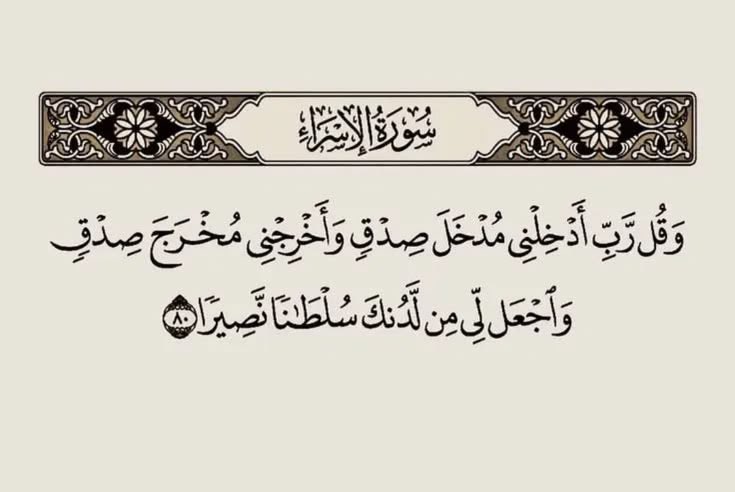 سُورَةُ الإِسْرَاءِ
وَقُل رَّبِّ أَدْخِلْنِي مُدْخَلَ صِدْقٍ وَأَخْرِجْنِي مُخْرَجَ صِدْقٍ
وَٱجْعَل لِّي مِن لَّدُنكَ سُلْطَٰنًا نَّصِيرًا ٨٠